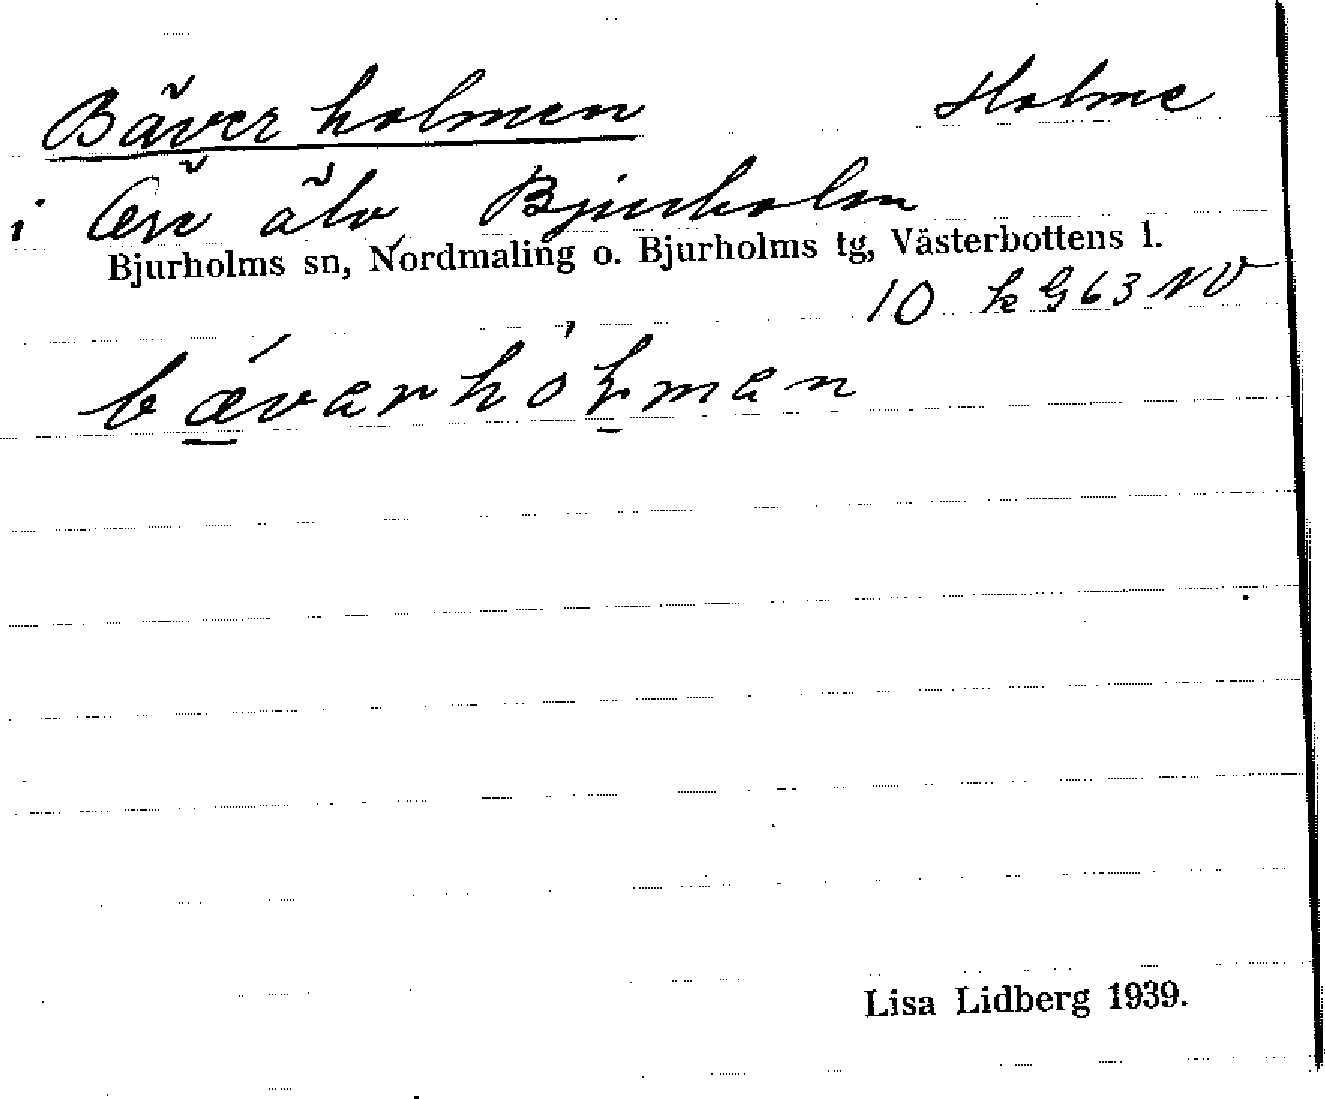 Bäverholmen Holme
i Öre älv, Bjurholm
Bjurholms sn, Nordmaling o. Bjurholms tg, Västerbottens l.
10 k G63 NV
bævarhóḷman
Lisa Lidberg 1939.